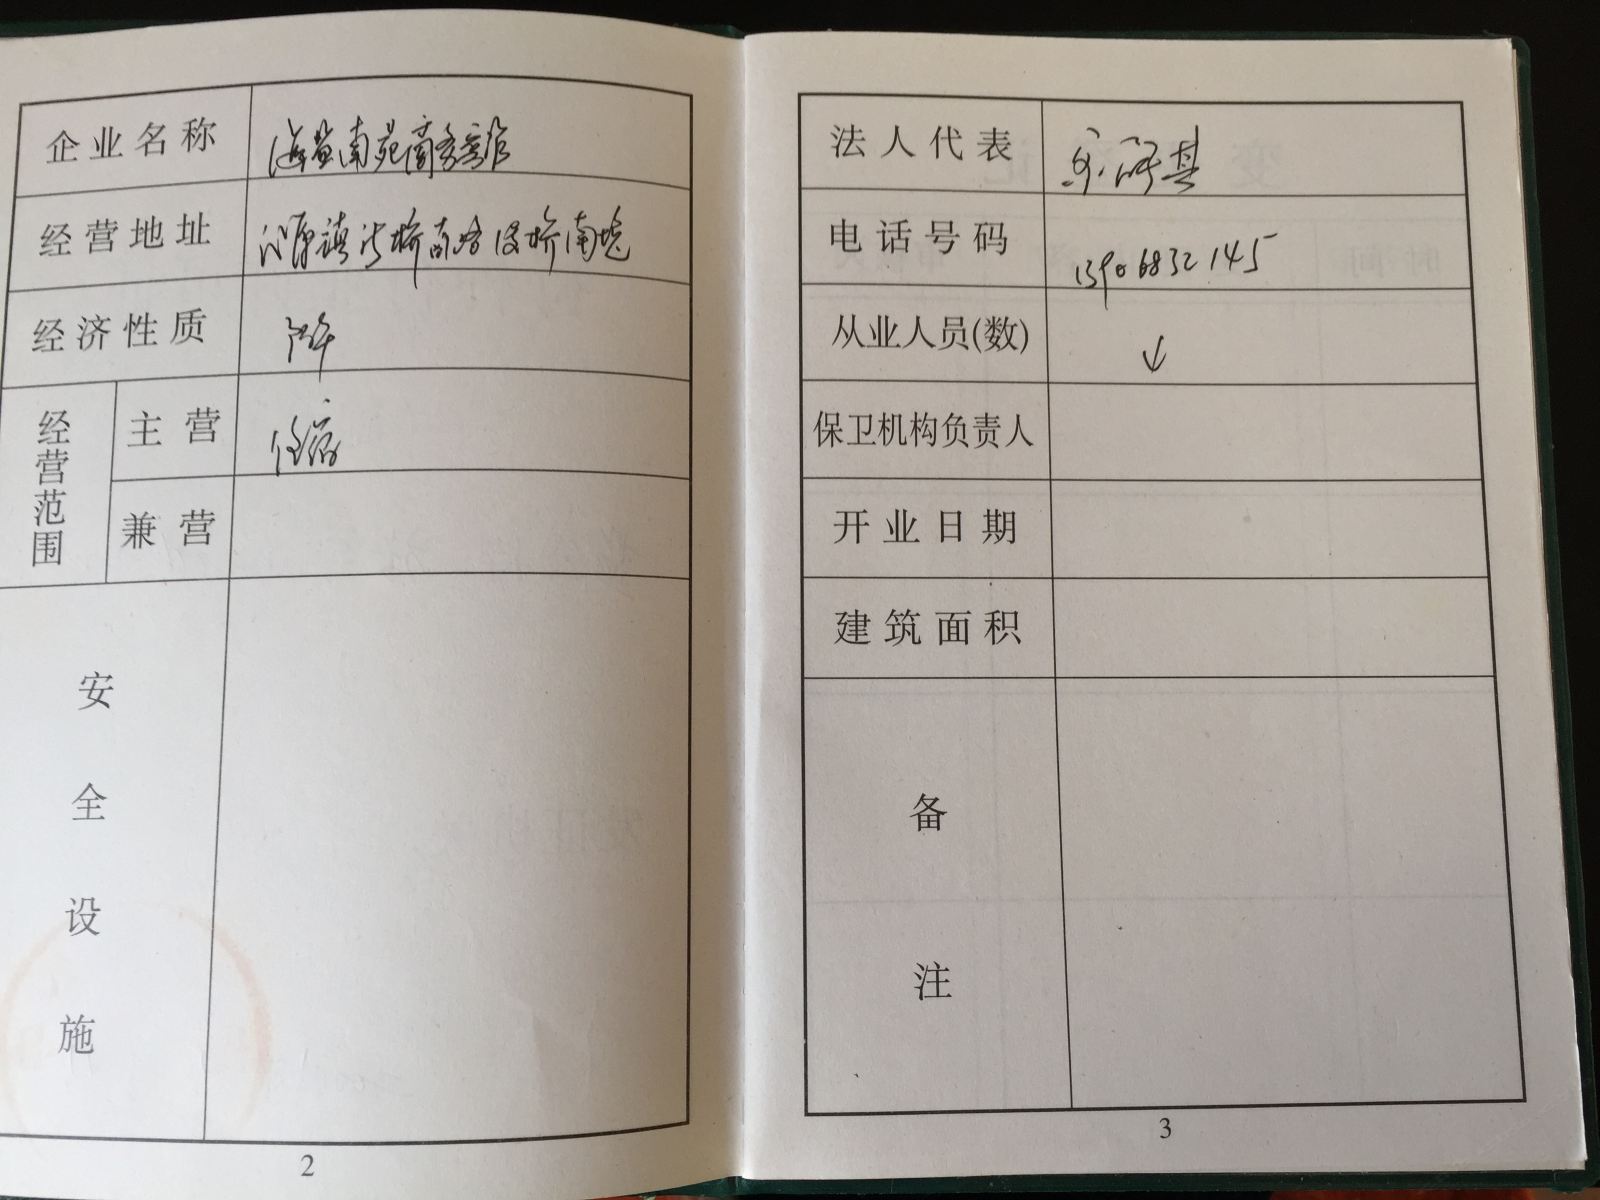 企业名称 海盐南苑商务宾馆
经营地址
经济性质
经营范围
主营 住宿
兼营
安全设施
2
法人代表
电话号码 13906832145
从业人员(数)
保卫机构负责人
开业日期
建筑面积
备注
3